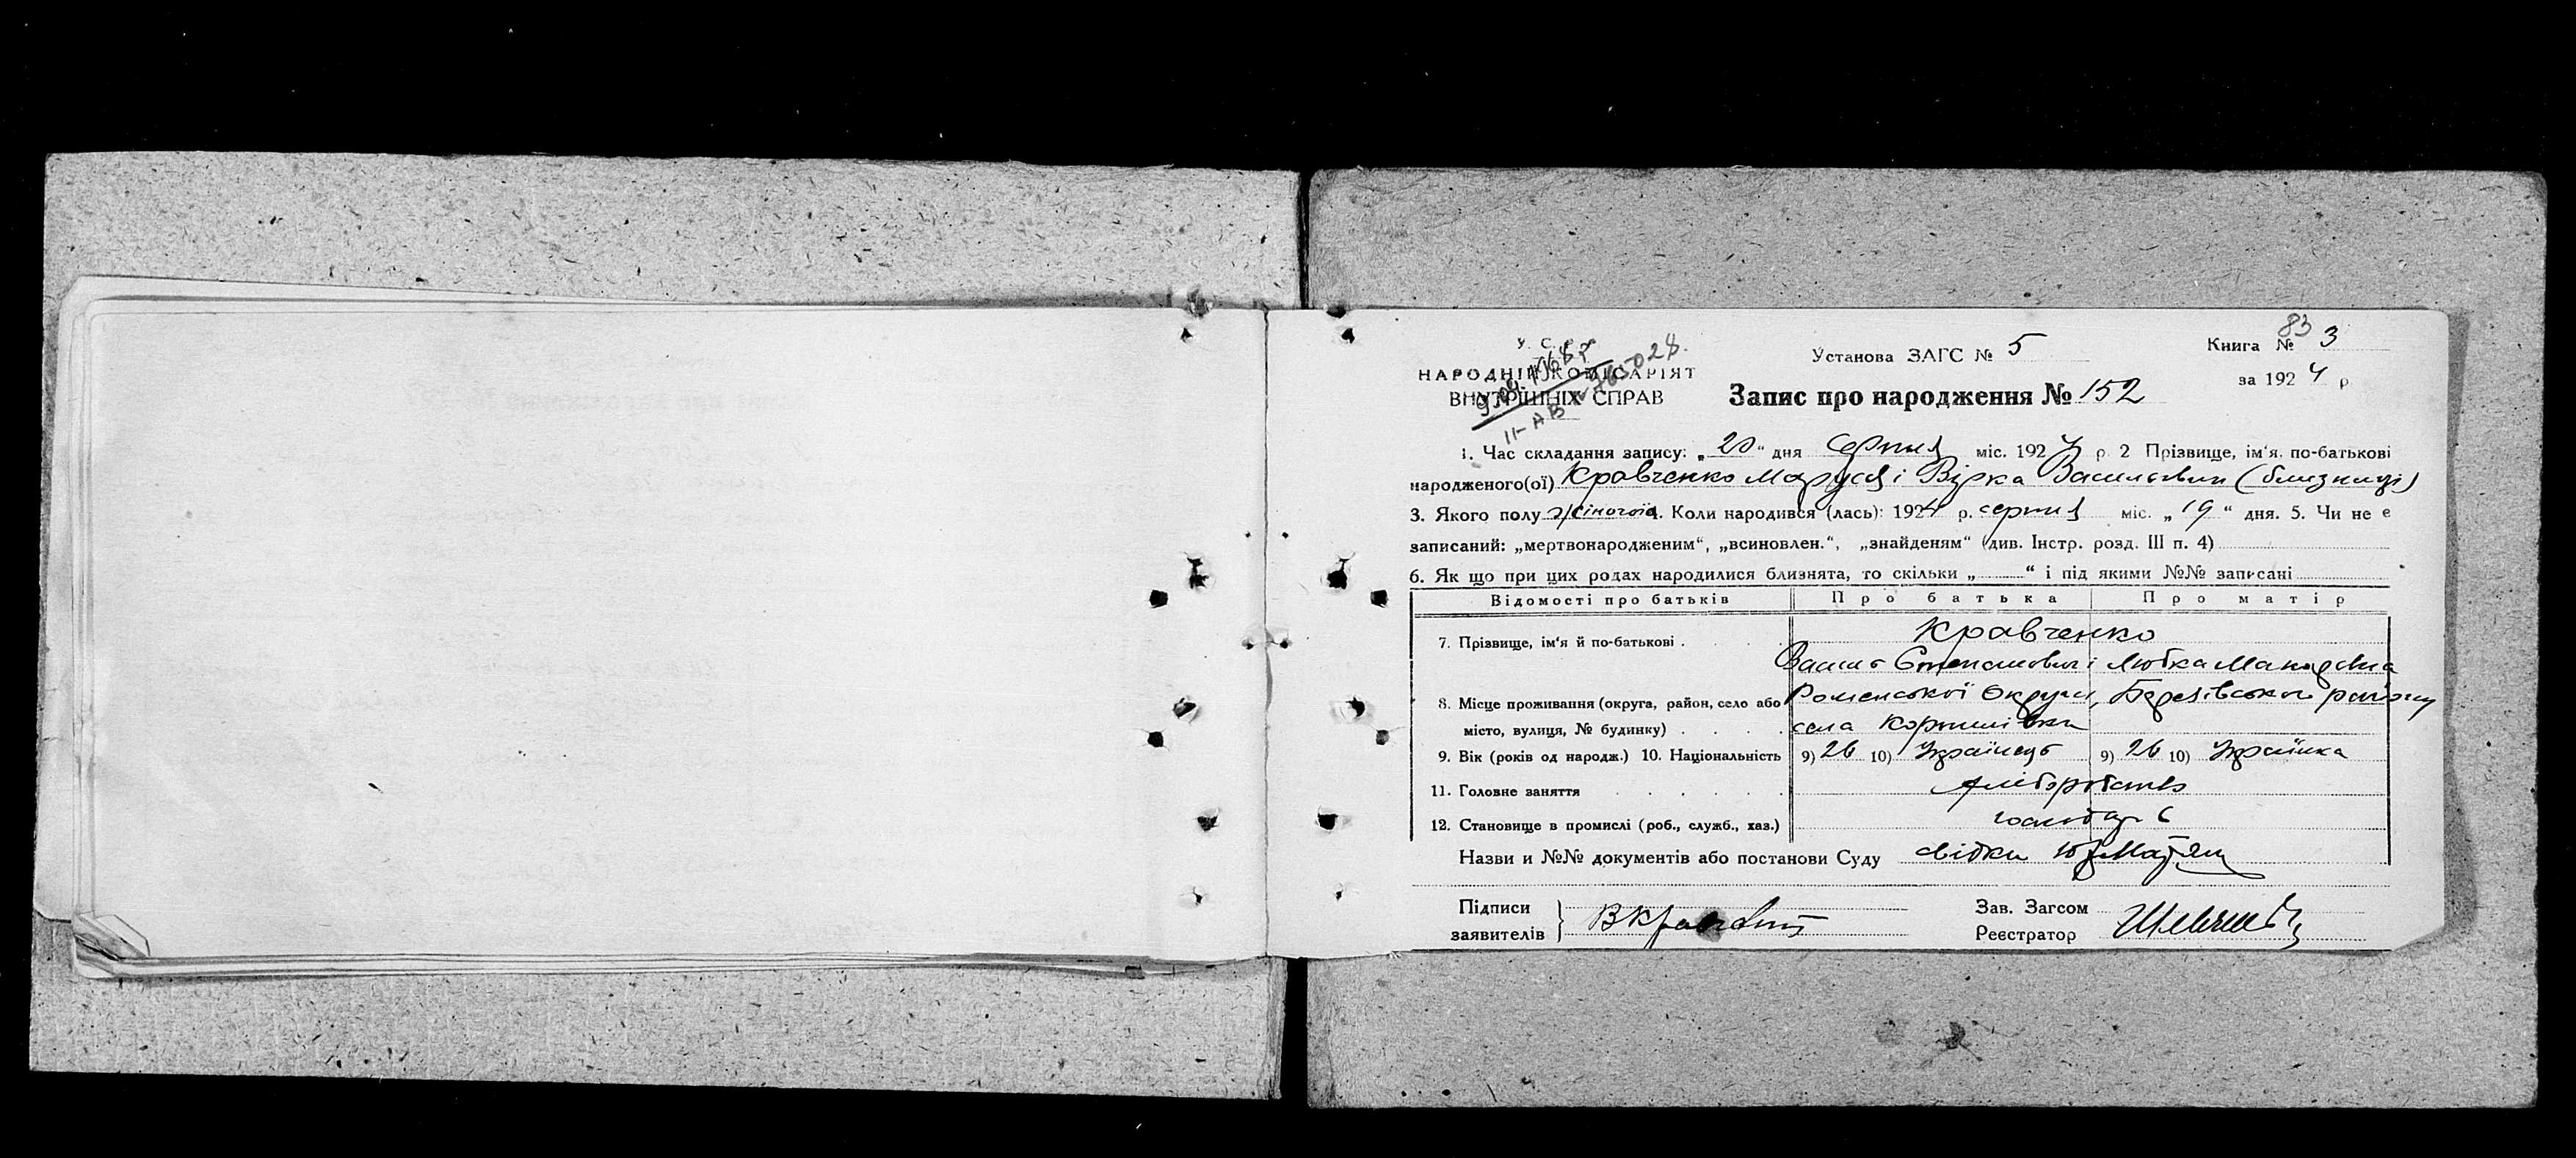 83
У. С. Р. Р.
Установа ЗАГС № 5
Книга № 3
НАРОДНІЙ КОМІСАРІЯТ
ВНУТРІШНІХ СПРАВ
за 1924 р
9.09.1968 г
II-АВ № 765028.
Запис про народження № 152
1. Час складання запису: „20“ дня серпня міс. 1924 р. 2 Прізвище, ім'я, по-батькові
народженого(ої) Кравченко Маруся і Вірка Васильевни (близниці)
3. Якого полу жіночої 4. Коли народився (лась): 1924 р. серпня міс. „19“ дня. 5. Чи не є
записаний: „мертвонародженим“, „всиновлен.“, „знайденям“ (див. Інстр. розд. III п. 4)
6. Як що при цих родах народилися близнята, то скільки „ “ і під якими №№ записані
Відомості про батьків Про батька Про матір
7. Прізвище, ім'я й по-батькові . Кравченко
Василь Степанович і Любка Макаровна
8. Місце проживання (округа, район, село або Роменської Округи, Березівського району
місто, вулиця, № будинку) села
9. Вік (років од народж.) 10. Національність 9) 26 10) Українець 9) 26 10) Українка
11. Головне заняття хліборобство
12. Становище в промислі (роб., служб., хаз.) господар
Назви и №№ документів або постанови Суду свідки
Підписи
заявителів
Зав. Загсом
Реєстратор